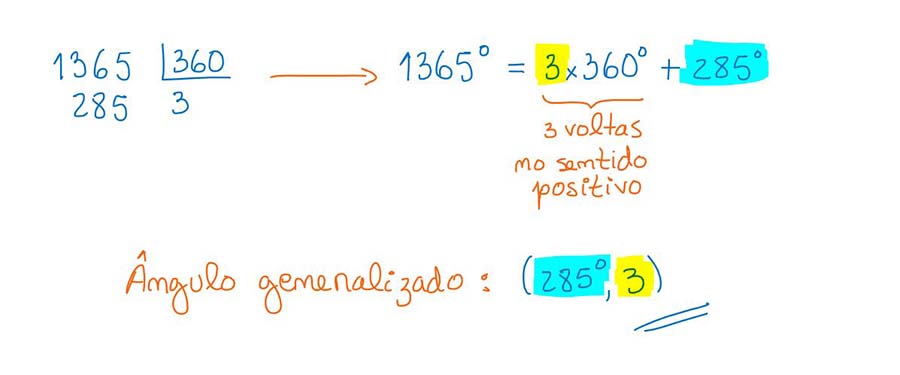 1365 360 → 1365° = 3x360° + 285°
285 3
3 voltas
no sentido
positivo
Ângulo generalizado: (285°, 3)